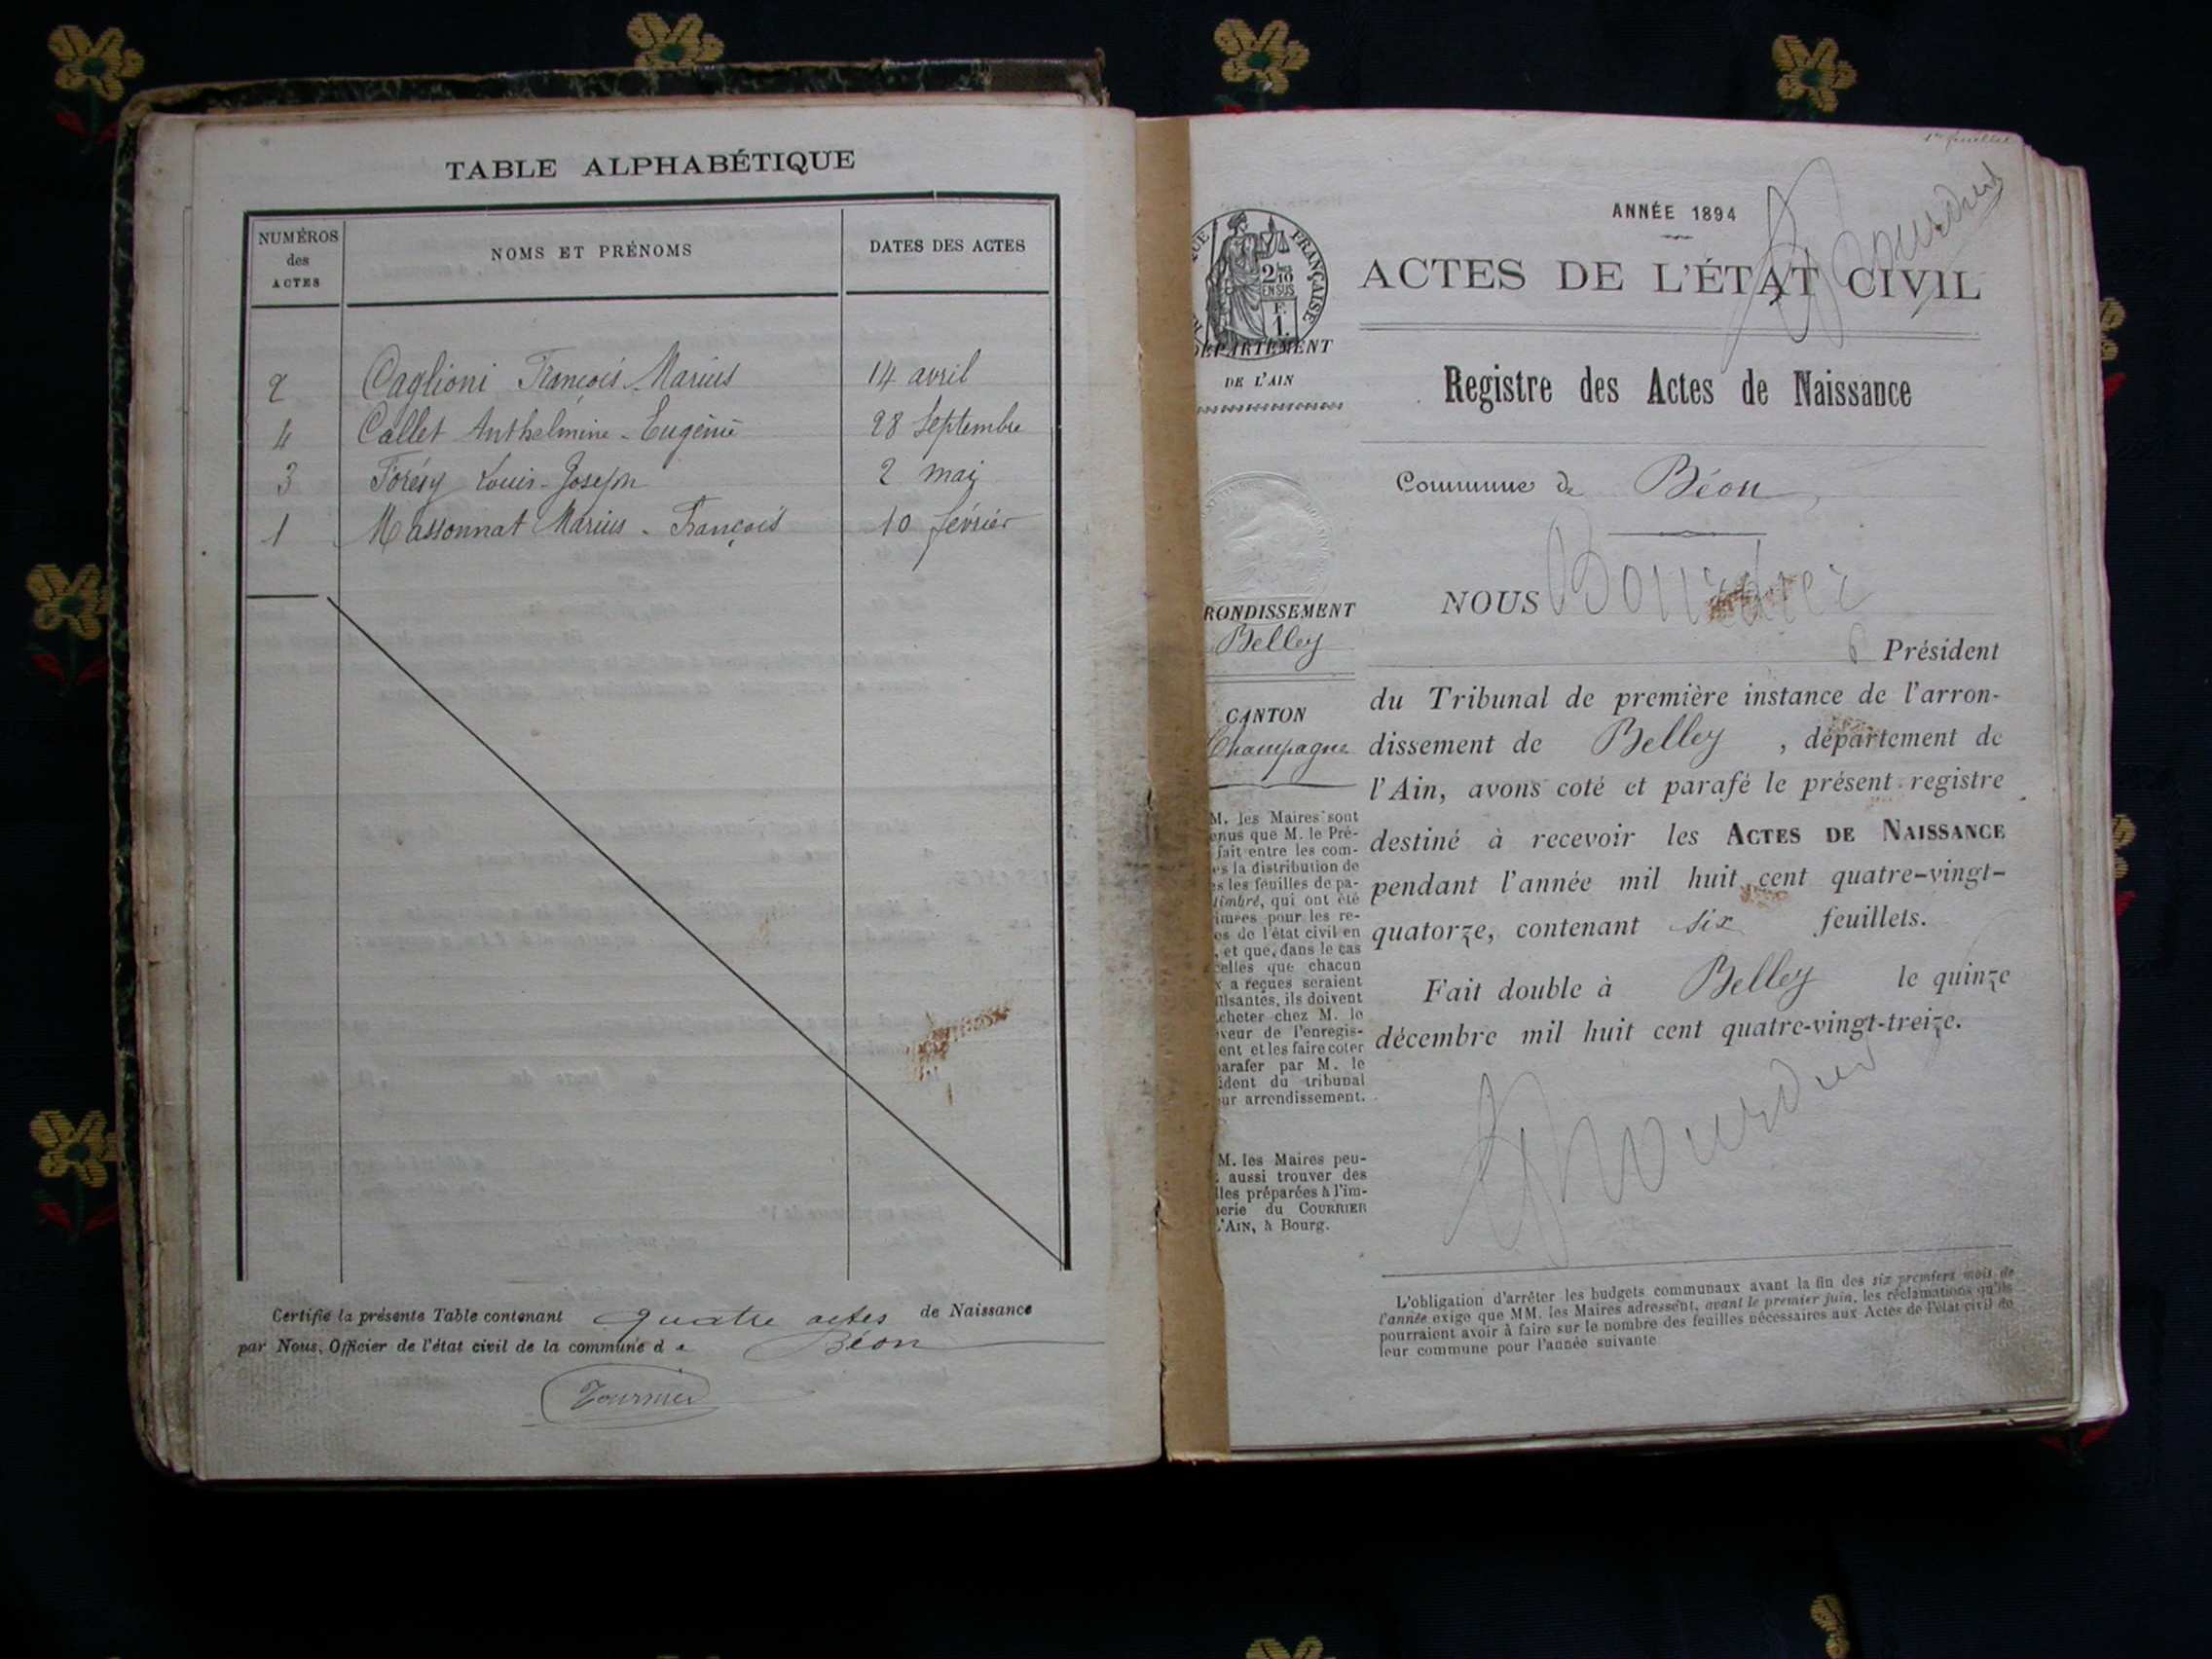 TABLE ALPHABÉTIQUE
NUMÉROS des ACTES
NOMS ET PRÉNOMS
DATES DES ACTES
2 Caglioni François-Marius 14 avril
4 Callet Anthelmine-Eugénie 28 Septembre
3 Louis-Joseph 2 mai
1 Massonnat Marius-François 10 février
Certifié la présente Table contenant quatre actes de Naissance
par Nous, Officier de l'état civil de la commune de Béon
Tournier
ANNÉE 1894
ACTES DE L'ÉTAT CIVIL
FRANÇAISE
2/10
EN SUS
F.
1.
DÉPARTEMENT
DE L'AIN
Registre des Actes de Naissance
Commune de Béon
RONDISSEMENT
Belley
CANTON
Champagne
M. les Maires sont
enus que M. le Pré-
fait entre les com-
es la distribution de
es les feuilles de pa-
timbré, qui ont été
imées pour les re-
es de l'état civil en
, et que, dans le cas
celles que chacun
x a reçues seraient
ffisantes, ils doivent
cheter chez M. le
veur de l'enregis-
ent et les faire coter
parafer par M. le
ident du tribunal
ur arrondissement.
M. les Maires peu-
t aussi trouver des
lles préparées à l'im-
erie du COURRIER
L'AIN, à Bourg.
NOUS
Président
du Tribunal de première instance de l'arron-
dissement de Belley, département de
l'Ain, avons coté et parafé le présent registre
destiné à recevoir les ACTES DE NAISSANCE
pendant l'année mil huit cent quatre-vingt-
quatorze, contenant six feuillets.
Fait double à Belley le quinze
décembre mil huit cent quatre-vingt-treize.
L'obligation d'arrêter les budgets communaux avant la fin des six premiers mois de
l'année exige que MM. les Maires adressent, avant le premier juin, les réclamations qu'ils
pourraient avoir à faire sur le nombre des feuilles nécessaires aux Actes de l'état civil de
leur commune pour l'année suivante